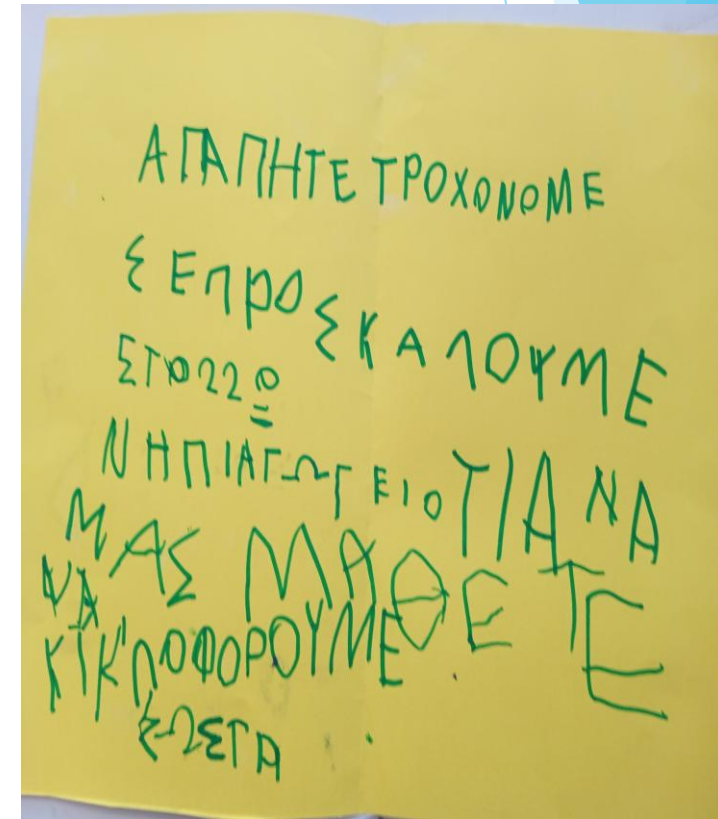 ΑΓΑΠΗΤΕ ΤΡΟΧΟΝΟΜΕ
ΣΕ ΠΡΟΣΚΑΛΟΥΜΕ
ΣΤΟ 22ο
ΝΗΠΙΑΓΩΓΕΙΟ ΓΙΑ ΝΑ
ΜΑΣ ΜΑΘΕΤΕ
ΝΑ
ΚΙΚΛΟΦΟΡΟΥΜΕ
ΣΩΣΤΑ